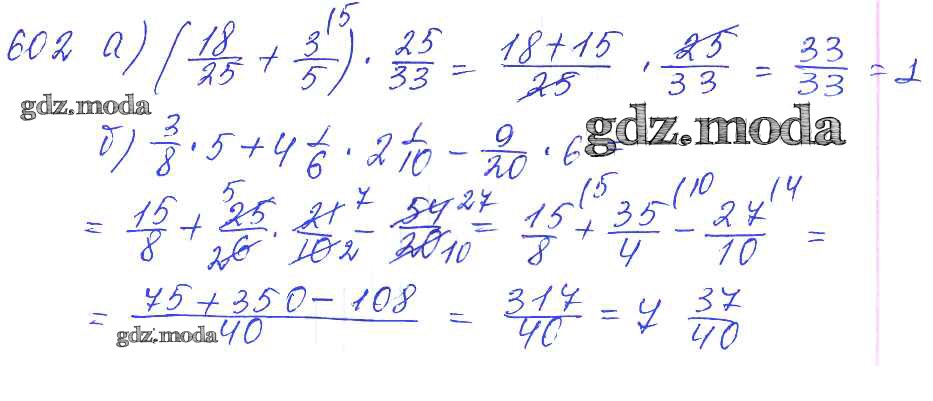 602 а) (18/25 + 3/5 (5) · 25/33 = 18+15/25 · 25/33 = 33/33 = 1
gdz.moda
gdz.moda
б) 3/8 · 5 + 4 1/6 · 2 1/10 - 9/20 · 6 =
= 15/8 + 25 5/6 2 · 21 7/10 2 - 54 27/20 10 = 15/8 (5 + 35/4 (10 - 27/10 (4 =
= 75+350-108/40 = 317/40 = 7 37/40
gdz.moda